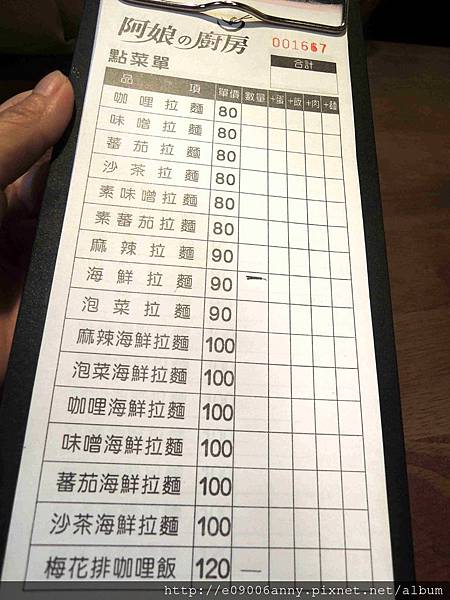 阿娘の廚房 001667
點菜單 合計
品項 單價 數量 +蛋 +飯 +肉 +麵
咖哩拉麵 80
味噌拉麵 80
蕃茄拉麵 80
沙茶拉麵 80
素味噌拉麵 80
素蕃茄拉麵 80
麻辣拉麵 90
海鮮拉麵 90 一
泡菜拉麵 90
麻辣海鮮拉麵 100
泡菜海鮮拉麵 100
咖哩海鮮拉麵 100
味噌海鮮拉麵 100
蕃茄海鮮拉麵 100
沙茶海鮮拉麵 100
梅花排咖哩飯 120 一
http://e09006anny.pixnet.net/album